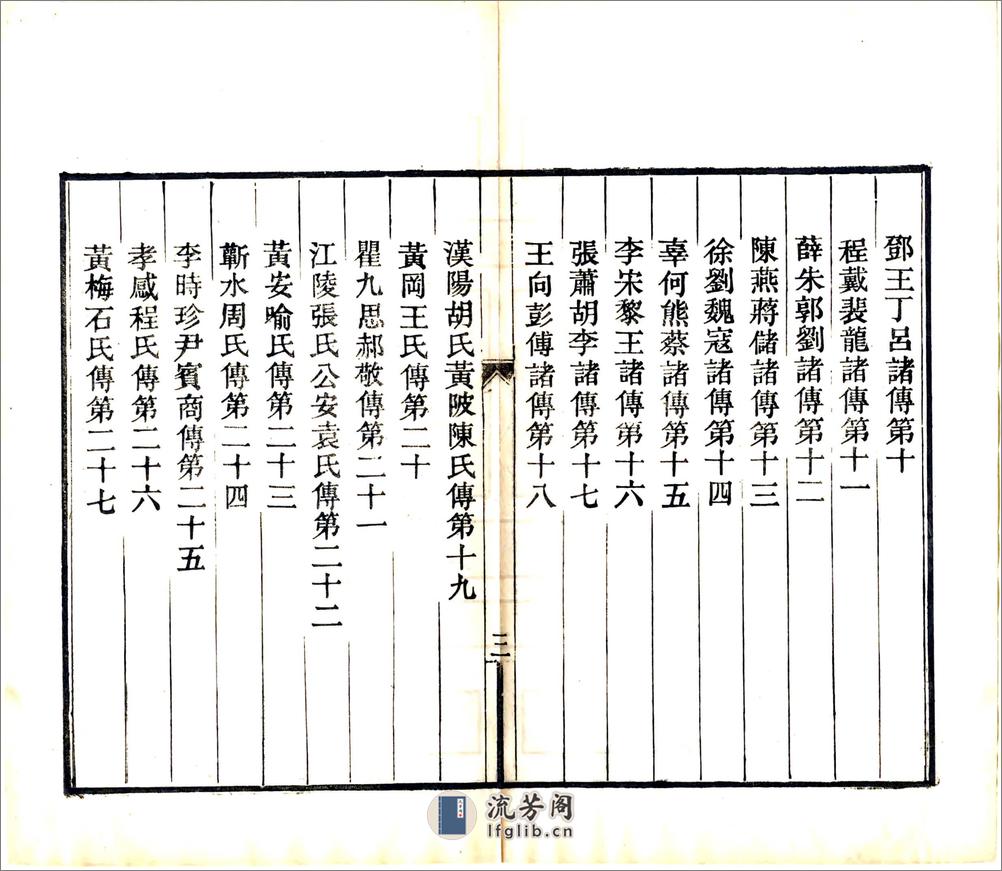 鄧王丁呂諸傳第十
程戴裴龍諸傳第十一
薛朱郭劉諸傳第十二
陳燕蔣儲諸傳第十三
徐劉魏寇諸傳第十四
辜何熊蔡諸傳第十五
李宋黎王諸傳第十六
張蕭胡李諸傳第十七
王向彭傅諸傳第十八
三
漢陽胡氏黃陂陳氏傳第十九
黃岡王氏傳第二十
瞿九思郝敬傳第二十一
江陵張氏公安袁氏傳第二十二
黃安喻氏傳第二十三
蘄水周氏傳第二十四
李時珍尹賓商傳第二十五
孝感程氏傳第二十六
黃梅石氏傳第二十七
流芳阁
lfglib.cn